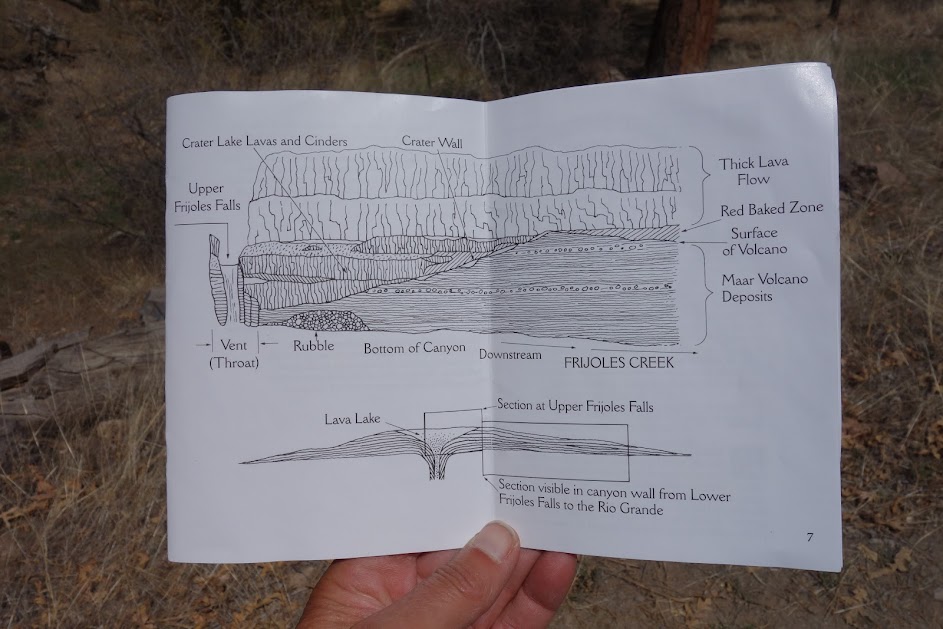 Crater Lake Lavas and Cinders
Crater Wall
Thick Lava
Flow
Upper
Frijoles Falls
Red Baked Zone
Surface
of Volcano
Maar Volcano
Deposits
Vent
(Throat)
Rubble
Bottom of Canyon
Downstream
FRIJOLES CREEK
Lava Lake
Section at Upper Frijoles Falls
Section visible in canyon wall from Lower
Frijoles Falls to the Rio Grande
7